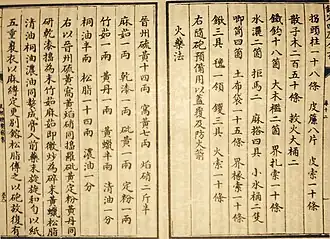 拐頭柱一十八條 皮簾八片 皮索一十條
散子木二百五十條 救火大桶二
鐵鈎十八箇 大木檻二箇 界扎索一十條
水濃二箇 拒馬二 麻搭四具 小水桶二隻
唧筒四箇 土布袋一十五條 界椽索一十條
鍬三具 氊一領 钁三具 火索一十條
右隨砲預備用以蓋覆及防火箭
火藥法
晉州硫黃十四兩 窩黃七兩 焰硝二斤半
麻茹一兩 乾漆一兩 砒黃一兩 定粉一兩
竹茹一兩 黃丹一兩 黃蠟半兩 清油一分
桐油半兩 松脂一十四兩 濃油一分
右以晉州硫黃窩黃焰硝同搗羅砒黃定粉黃丹同
研乾漆搗為末竹茹麻茹即微炒為碎末黃蠟松脂
清油桐油濃油同熬成膏入前藥末旋旋和勻以紙
五重裹衣以麻縛定更別鎔松脂傅之以砲放復有